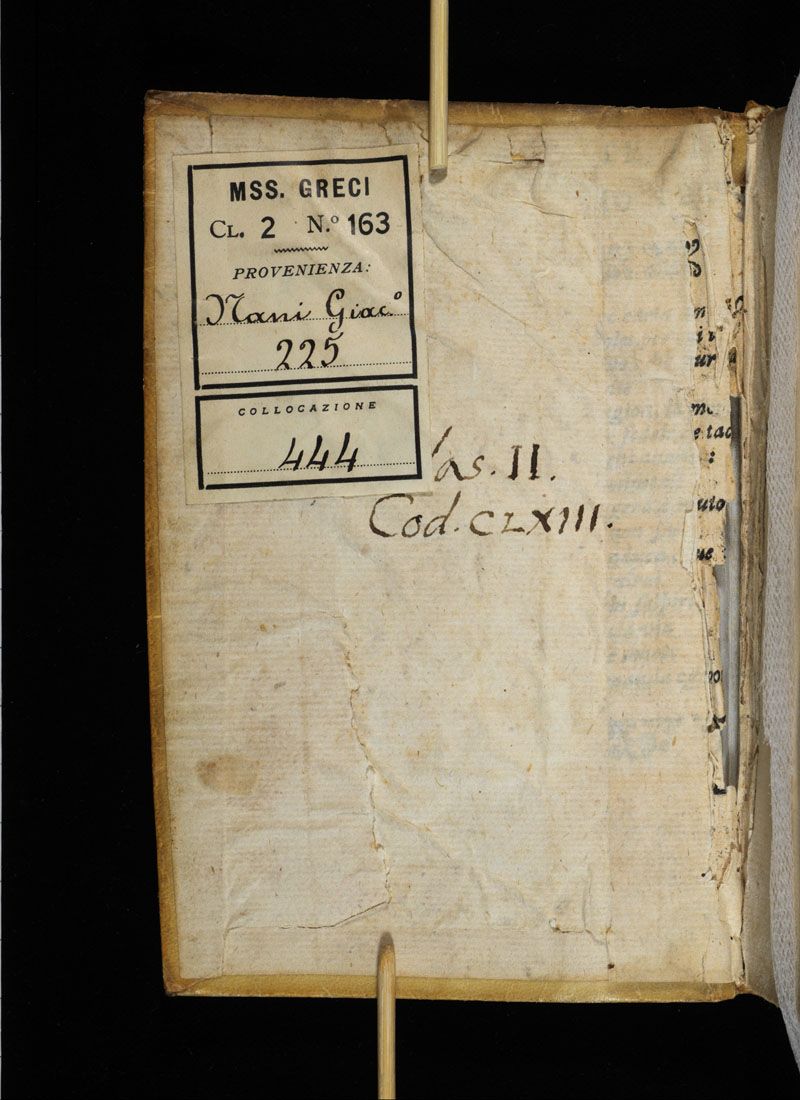 MSS. GRECI
CL. 2 N.º 163
PROVENIENZA:
Nani Giac.º
225
COLLOCAZIONE
444
as. II.
Cod. CLXIII.
ur
etad
uto
ue